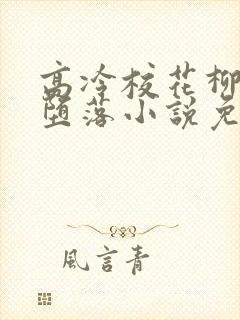 高冷校花柳
堕落小說免
風言青